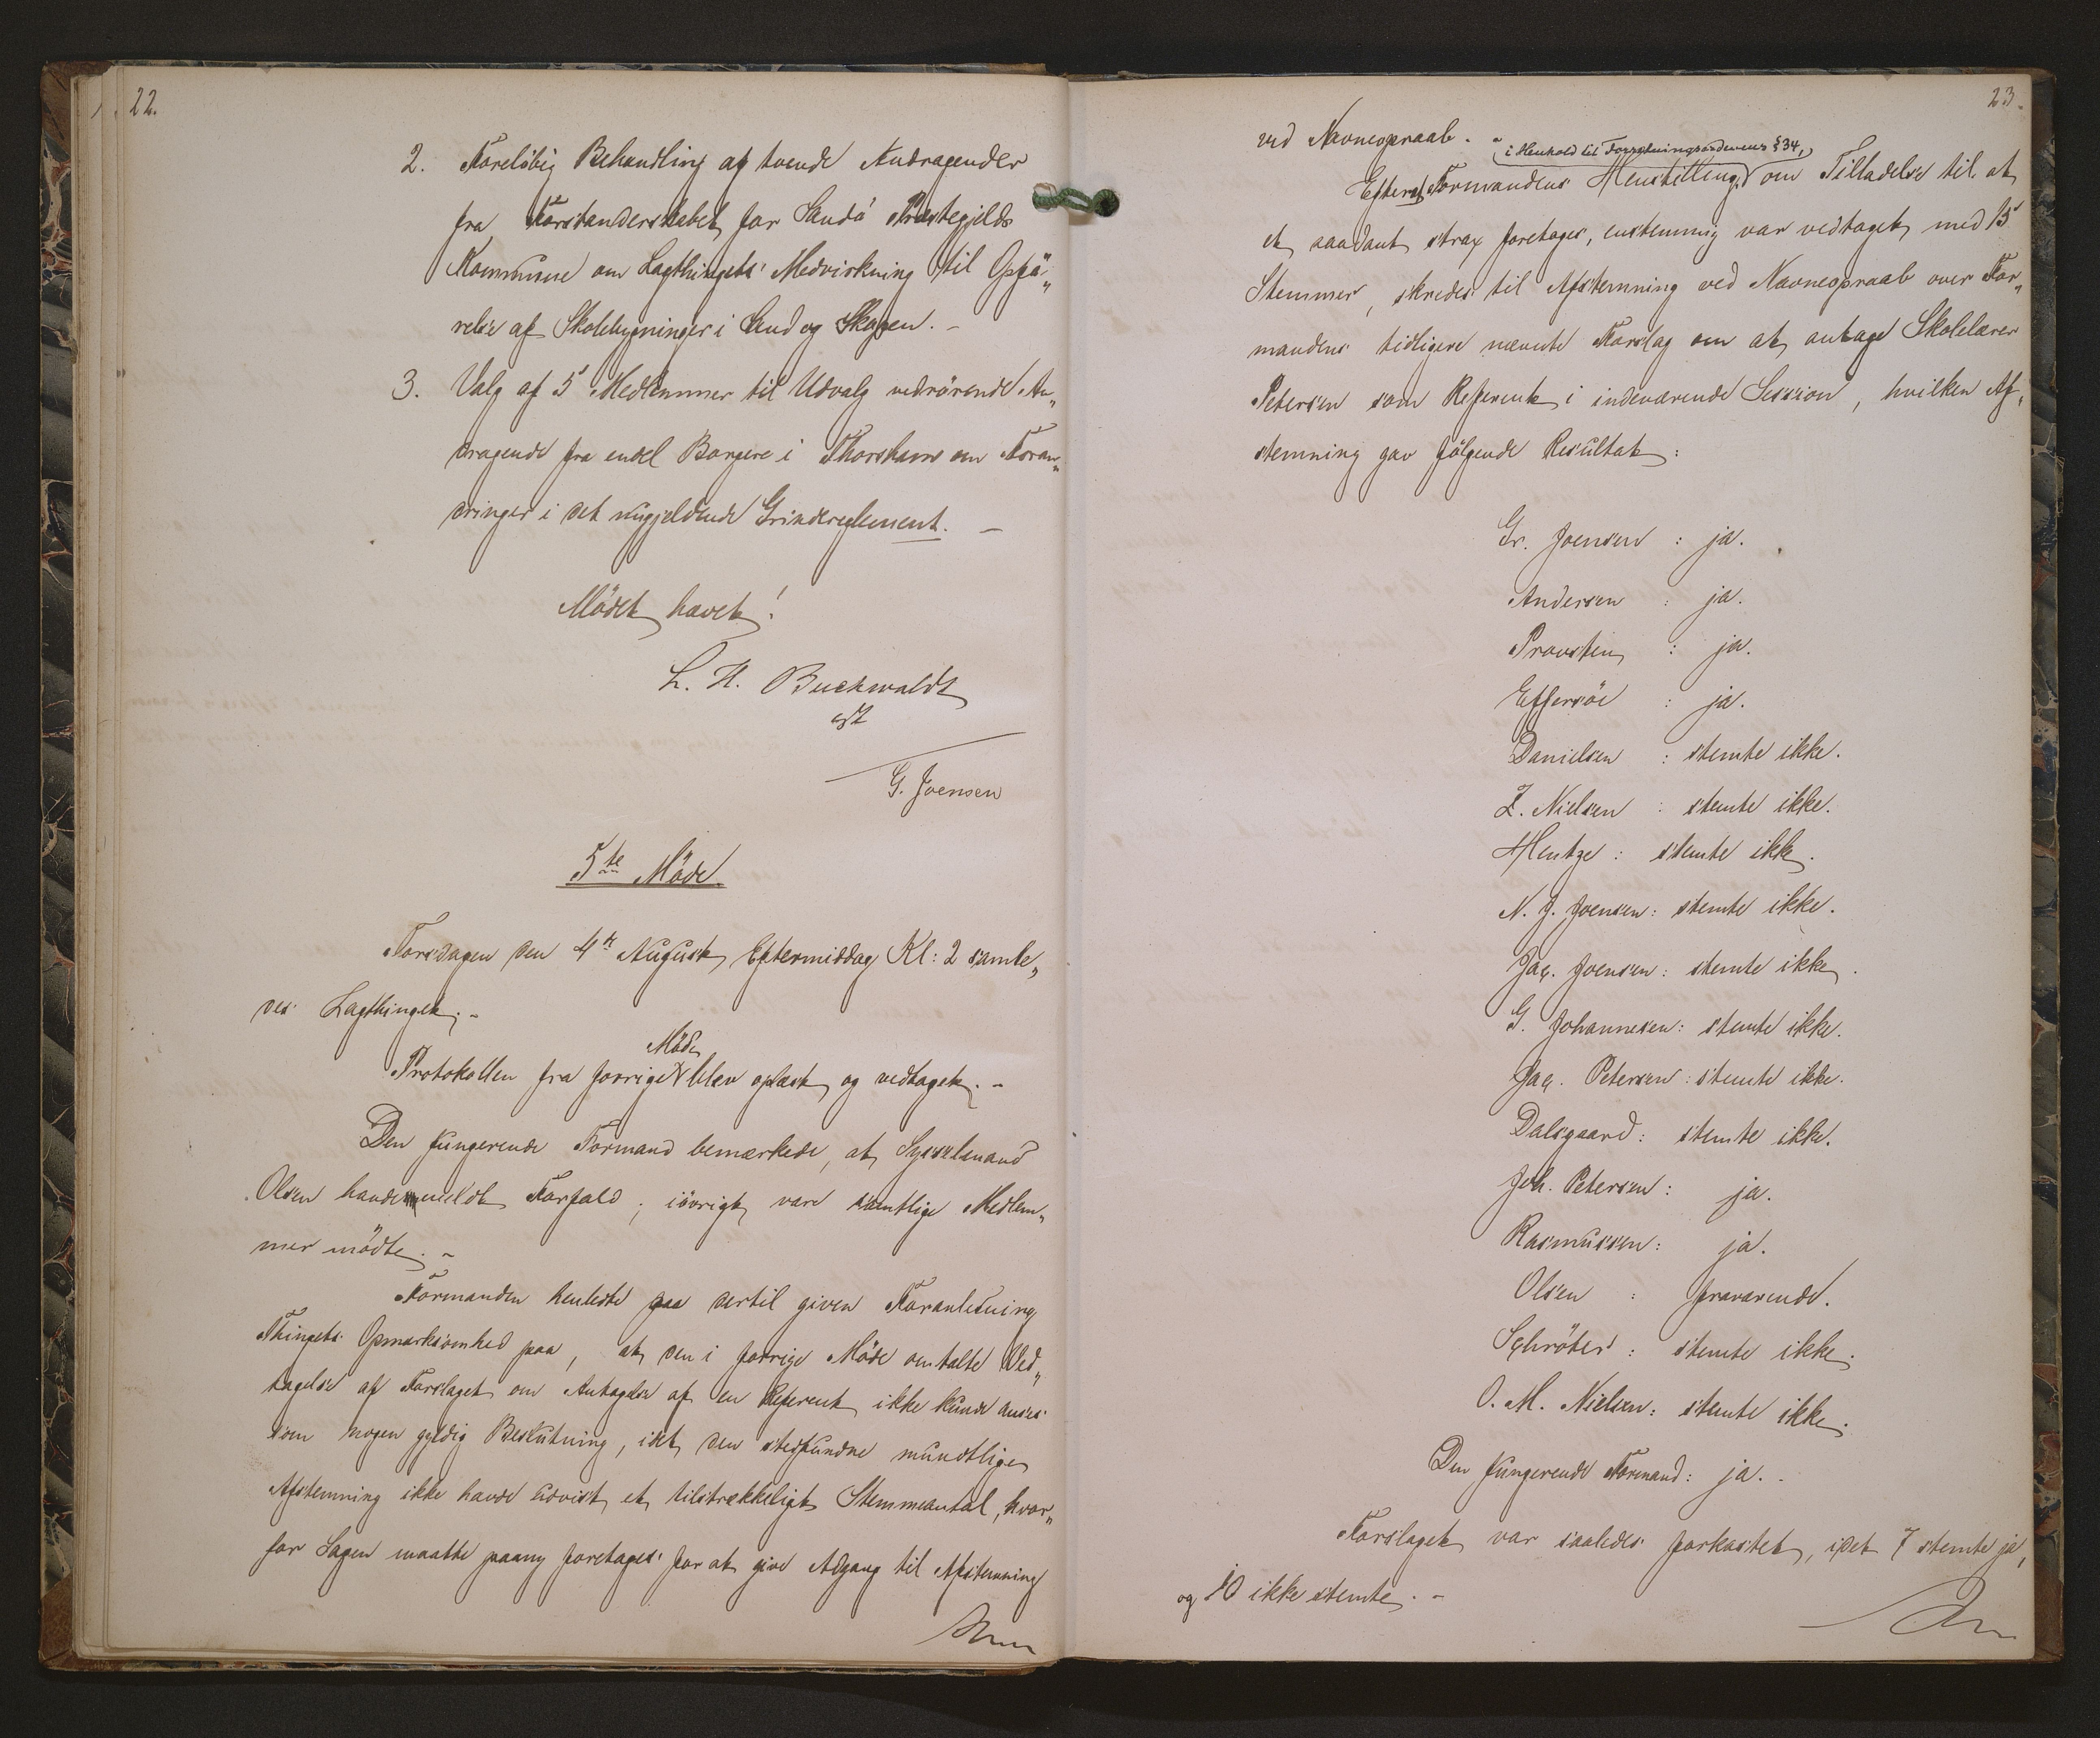 22.
2. Foreløbig Behandling af tvende Andragender
fra Forstanderskabet for Sandö Præstegjelds
Kommune om Lagthingets Medvirkning til Opfö„
relse af Skolebygninger i Sand og Skopen. –
3. Valg af 5 Medlemmer til Udvalg vedrörende An„
dragende fra endel Borgere i Thorshavn om Foran„
dringer i det nugjeldende Grindereglement. –
Mödet hævet!
L. H. Buchwaldt
cst
G. Joensen
5te Möde
Torsdagen den 4de August Eftermiddag Kl: 2 samle„
des Lagthinget. –
Protokollen fra forrige Möde blev oplæst og vedtaget. –
Den fungerende Formand bemærkede, at Sysselmand
Olsen havde meldt Forfald; iövrigt vare samtlige Medlem„
mer mödte. –
Formanden henledte paa dertil given Foranledning
Thingets Opmærksomhed paa, at den i forrige Möde omtalte Ved„
tagelse af Forslaget om Antagelse af en Referent ikke kunde anses
som nogen gyldig Beslutning, idet den stedfundne mundtlige
Afstemning ikke havde udvist et tilstrækkeligt Stemmeantal, hvor„
for Sagen maatte paany foretages for at give Adgang til Afstemning
23.
ved Navneopraab. –
Efterat Formandens Henstilling i Henhold til Forretningsordenens § 34, om Tilladelse til at
et saadant strax foretages, enstemmig var vedtaget med 15
Stemmer, skredes til Afstemning ved Navneopraab over For„
mandens tidligere nævnte Forslag om at antage Skolelærer
Petersen som Referent i indeværende Session, hvilken Af„
stemning gav fölgende Resultat:
Gr. Joensen : ja.
Andersen : ja.
Provsten : ja.
Effersöe : ja.
Danielsen : stemte ikke.
Z. Nielsen : stemte ikke.
Hentze : stemte ikke.
N. J. Joensen : stemte ikke.
Jac. Joensen : stemte ikke.
G. Johannesen : stemte ikke.
Jac. Petersen : stemte ikke.
Dalsgaard : stemte ikke.
Joh. Petersen : ja.
Rasmussen : ja.
Olsen : fraværende.
Schröter : stemte ikke.
O. M. Nielsen : stemte ikke.
Den fungerende Formand : ja. –
Forslaget var saaledes forkastet, idet 7 stemte ja,
og 10 ikke stemte. –